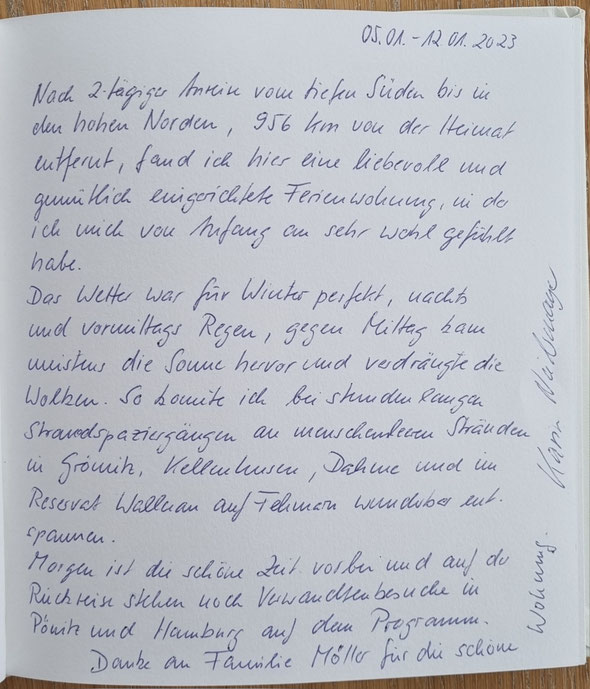 05.01. - 12.01.2023
Nach 2-tägiger Anreise vom tiefen Süden bis in
den hohen Norden, 956 km von der Heimat
entfernt, fand ich hier eine liebevoll und
gemütlich eingerichtete Ferienwohnung, in der
ich mich von Anfang an sehr wohl gefühlt
habe.
Das Wetter war für Winter perfekt, nachts
und vormittags Regen, gegen Mittag kam
meistens die Sonne hervor und verdrängte die
Wolken. So konnte ich bei stundenlangen
Strandspaziergängen an menschenleeren Stränden
in Grömitz, Kellenhusen, Dahme und im
Reservat Wallnau auf Fehmarn wunderbar ent-
spannen.
Morgen ist die schöne Zeit vorbei und auf der
Rückreise stehen noch Verwandtenbesuche in
Pönitz und Hamburg auf dem Programm.
Danke an Familie Möller für die schöne
Wohnung. Karin